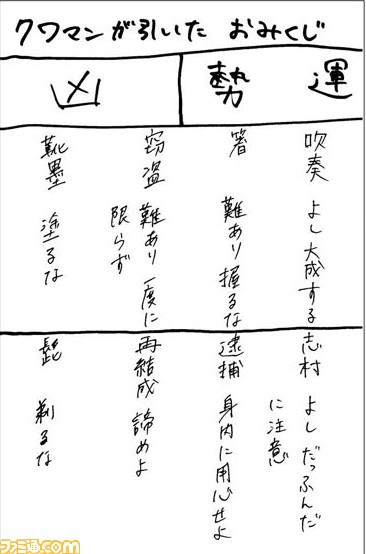 クワマンが引いた おみくじ
運勢
凶
吹奏 よし大成する
箸 難あり握るな
窃盗 難あり一度に
限らず
靴墨 塗るな
志村 よし だっふんだ
に注意
逮捕 身内に用心せよ
再結成 諦めよ
髭 剃るな
ファミ通.com